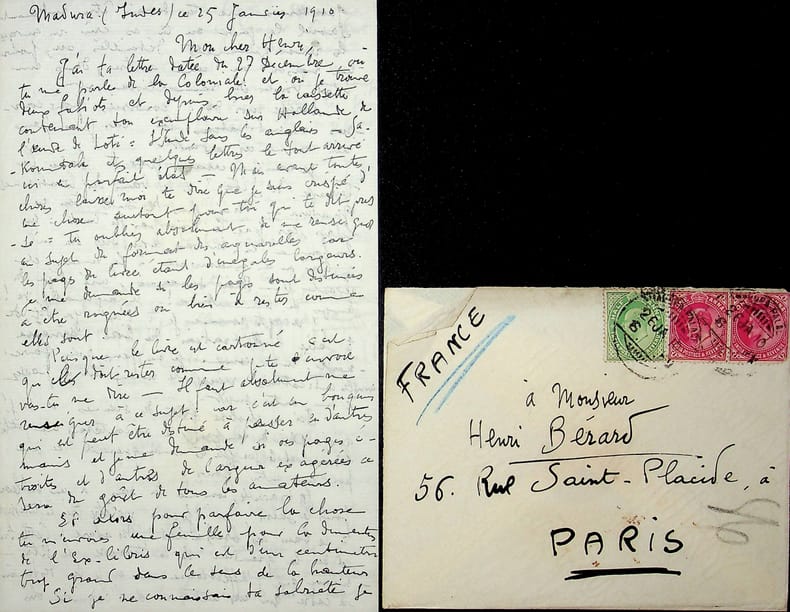 Madura (Indes) ce 25 Janvier 1910
Mon cher Henri,
J'ai ta lettre datée du 27 Décembre, où
tu me parle de la Coloniale et où je trouve
deux et depuis hier la cassette
contenant ton exemplaire sur Hollande de
l'Inde de Loti = l'Inde sans les anglais - Sa-
-Kountala et quelques lettres le tout arrivé
ici en parfait état - Mais avant toutes
choses laisse moi te dire que je suis crispé d'
une chose surtout pour toi qui te dit pres
-sé = tu oublies absolument de me renseigner
au sujet du format des aquarelles car
les pages du livre étant d'inégales largeurs.
je me demande si les pages sont destinées
à être rognées ou bien à rester comme
elles sont.
Puisque le livre est cartonné c'est
qu'elles doit rester comme
vas-tu me dire - Il faut absolument me
renseigner à ce sujet car c'est un bouquin
qui est peut être destiné à passer en d'autres
mains et je me demande si ces pages é-
troites et d'autres de largeur exagérées ce
sera du goût de tous les amateurs.
Et alors pour parfaire la chose
tu m'envoies une feuille pour la dimentes
de l'Ex-libris qui est d'un centimètre
trop grand dans le sens de la hauteur
Si je ne connaissais ta sobriété je
FRANCE
à Monsieur
Henri Bérard
56. Rue Saint-Placide, à
PARIS